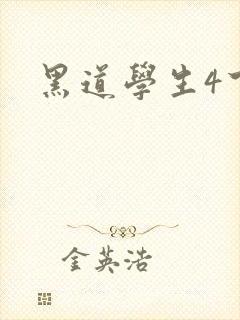 黑道學生4
金英浩